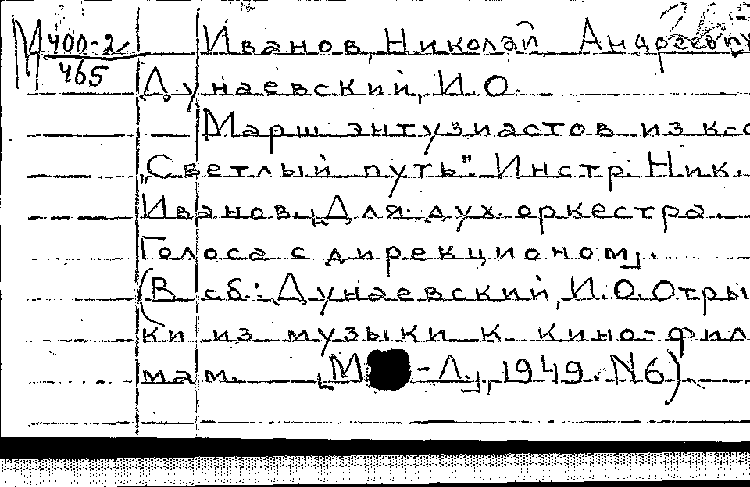 М 400-2/465
Иванов, Николай Андреевич
Дунаевский, И.О.
Марш энтузиастов из к-
"Светлый путь". Инстр. Ник.
Иванов. [Для дух. оркестра.
Голоса с дирекционом].
(В сб.: Дунаевский, И.О. Отры
ки из музыки к кино-фил
мам. [М -Л.], 1949. N6)